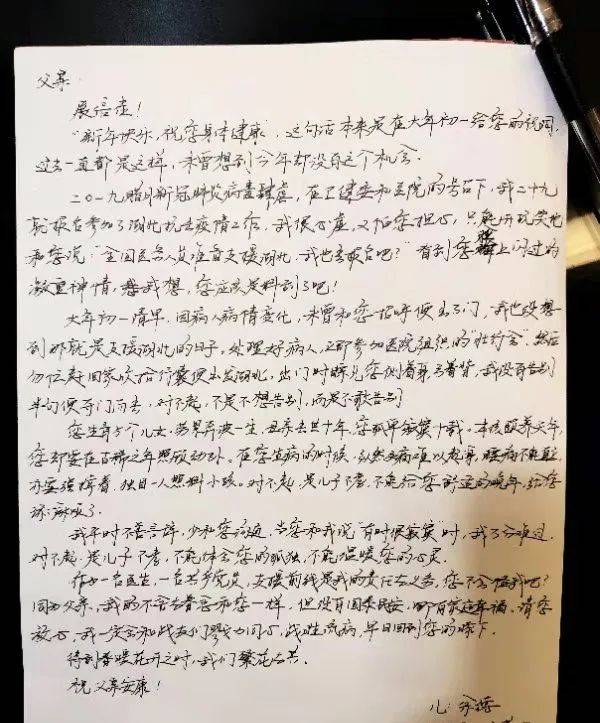 父亲：
展信佳！
“新年快乐，祝您身体健康”，这句话本来是在大年初一给您的祝词，
过去一直都是这样，未曾想到今年却没有这个机会。
二〇一九腊月新冠肺炎病毒肆虐，在卫健委和医院的号召下，我二十九
就报名参加了湖北抗击疫情工作，我很心虚，又怕您担心，只能开玩笑地
和您说：“全国医务人员准备支援湖北，我也去报名吧？”看到您脸上闪过的
凝重神情，我想，您应该是料到了吧！
大年初一清早，因病人病情变化，未曾和您招呼便出了门，我也没想
到那就是支援湖北的日子，处理好病人，立即参加医院组织的“壮行会”，然后
匆忙赶回家收拾行囊便出发湖北，出门时瞧见您侧着身弓着背，我没有告别
半句便夺门而去，对不起，不是不想告别，而是不敢告别
您生育5个儿女，劳累奔波一生，母亲去世十年，您孤单寂寞十载。本该颐养天年，
您却要在古稀之年照顾幼孙。在您生病的时候，纵然病痛难以起身，腰痛不能直立，
亦要强撑着，独自一人照料小孩。对不起，是儿子不孝，不能给您舒适的晚年，给您
添麻烦了。
我平时不善言辞，少和您沟通，当您和我说“有时很寂寞”时，我十分难过，
对不起，是儿子不孝，不能体会您的孤独，不能温暖您的心灵。
作为一名医生，一名共产党员，支援前线是我的责任与义务，您不会怪我吧？
同为父亲，我的不舍与眷恋和您一样，但没有国泰民安，哪有家庭幸福。请您
放心，我一定会和战友们勠力同心，战胜流病，早日回到您的膝下。
待到春暖花开之时，我们繁花与共。
祝父亲安康！
儿：